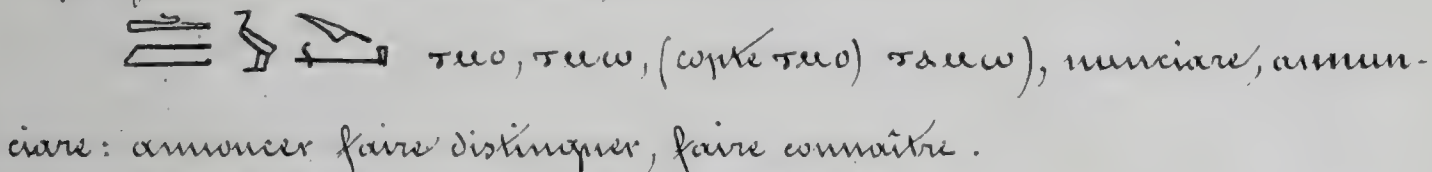 ⲧⲙⲟ, ⲧⲙⲱ, (copte ⲧⲙⲟ) ⲧⲁⲙⲱ), nunciare, annun-
ciare: annoncer faire distinguer, faire connaître.